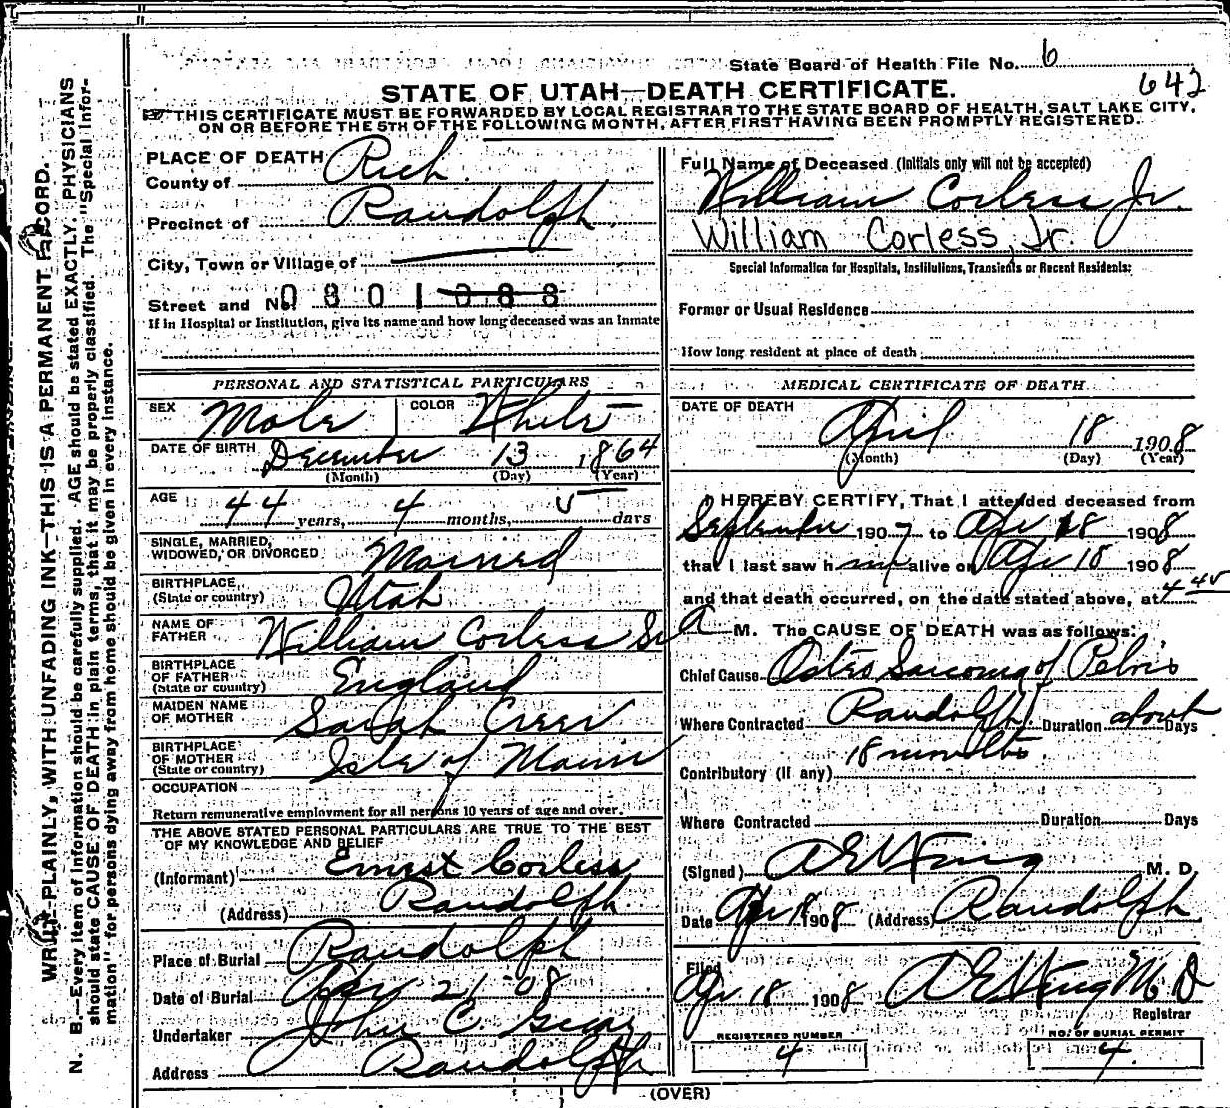 State Board of Health File No. 6
642
STATE OF UTAH—DEATH CERTIFICATE.
THIS CERTIFICATE MUST BE FORWARDED BY LOCAL REGISTRAR TO THE STATE BOARD OF HEALTH, SALT LAKE CITY,
ON OR BEFORE THE 5TH OF THE FOLLOWING MONTH, AFTER FIRST HAVING BEEN PROMPTLY REGISTERED.
WRITE PLAINLY, WITH UNFADING INK—THIS IS A PERMANENT RECORD.
N. B.—Every item of information should be carefully supplied. AGE should be stated EXACTLY. PHYSICIANS
should state CAUSE OF DEATH in plain terms, that it may be properly classified. The "Special Infor-
mation" for persons dying away from home should be given in every instance.
PLACE OF DEATH
County of Rich
Precinct of Randolph
City, Town or Village of
Street and No. 0801088
If in Hospital or Institution, give its name and how long deceased was an Inmate
PERSONAL AND STATISTICAL PARTICULARS
SEX Male COLOR White
DATE OF BIRTH December 13 1864
(Month) (Day) (Year)
AGE 44 years, 4 months, 5 days
SINGLE, MARRIED,
WIDOWED, OR DIVORCED Married
BIRTHPLACE
(State or country) Utah
NAME OF
FATHER William Corless Sr
BIRTHPLACE
OF FATHER
(State or country) England
MAIDEN NAME
OF MOTHER Sarah Creer
BIRTHPLACE
OF MOTHER
(State or country) Isle of Mann
OCCUPATION
Return remunerative employment for all persons 10 years of age and over.
THE ABOVE STATED PERSONAL PARTICULARS ARE TRUE TO THE BEST
OF MY KNOWLEDGE AND BELIEF
(Informant) Ernest Corless
(Address) Randolph
Place of Burial Randolph
Date of Burial Apr 21 - 08
Undertaker John C. Gray
Address Randolph
Full Name of Deceased (Initials only will not be accepted)
William Corless Jr.
William Corless, Jr.
Special Information for Hospitals, Institutions, Transients or Recent Residents:
Former or Usual Residence
How long resident at place of death
MEDICAL CERTIFICATE OF DEATH
DATE OF DEATH
April 18 1908
(Month) (Day) (Year)
I HEREBY CERTIFY, That I attended deceased from
September 1907 to Apr 18 1908
that I last saw h im alive on Apr 18 1908
and that death occurred, on the date stated above, at 4 45
A M. The CAUSE OF DEATH was as follows:
Chief Cause Osteo Sarcoma of Pelvis
Where Contracted Randolph Duration about Days
18 months
Contributory (if any)
Where Contracted Duration Days
(Signed) M. D.
Date Apr 18 1908 (Address) Randolph
Filed
Apr 18 1908 M. D
Registrar
REGISTERED NUMBER
4
NO. OF BURIAL PERMIT
4.
(OVER)